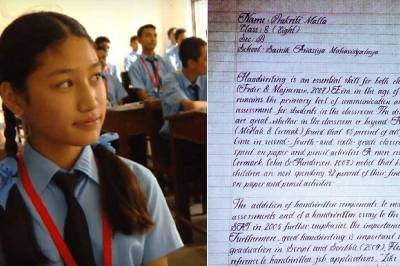 Name: Prakriti Malla
Class: 8 (Eight)
Sec: B
School: Sainik Awasiya Mahavidyalaya
Handwriting is an essential skill for both ch
(Feder & Majnemer, 2007) Even in the age of
remains the primary tool of communication and
assessment for students in the classroom. The de
are great, whether in the classroom or beyond. A
(McHale & Cermak) found that 85 percent of all
time in second-, fourth- and sixth-grade classr
spent on paper and pencil activities. A more rec
Cermak, Cohn & Henderson, 2003) noted that ki
children are now spending 42 percent of their
on paper and pencil activities.
The addition of handwritten components to
assessments and of a handwritten essay to the
SAT in 2005 further emphasize the importance
Furthermore, good handwriting is important
graduation in Script and Scribble (2009), Fl
reference to handwritten job applications. "Like